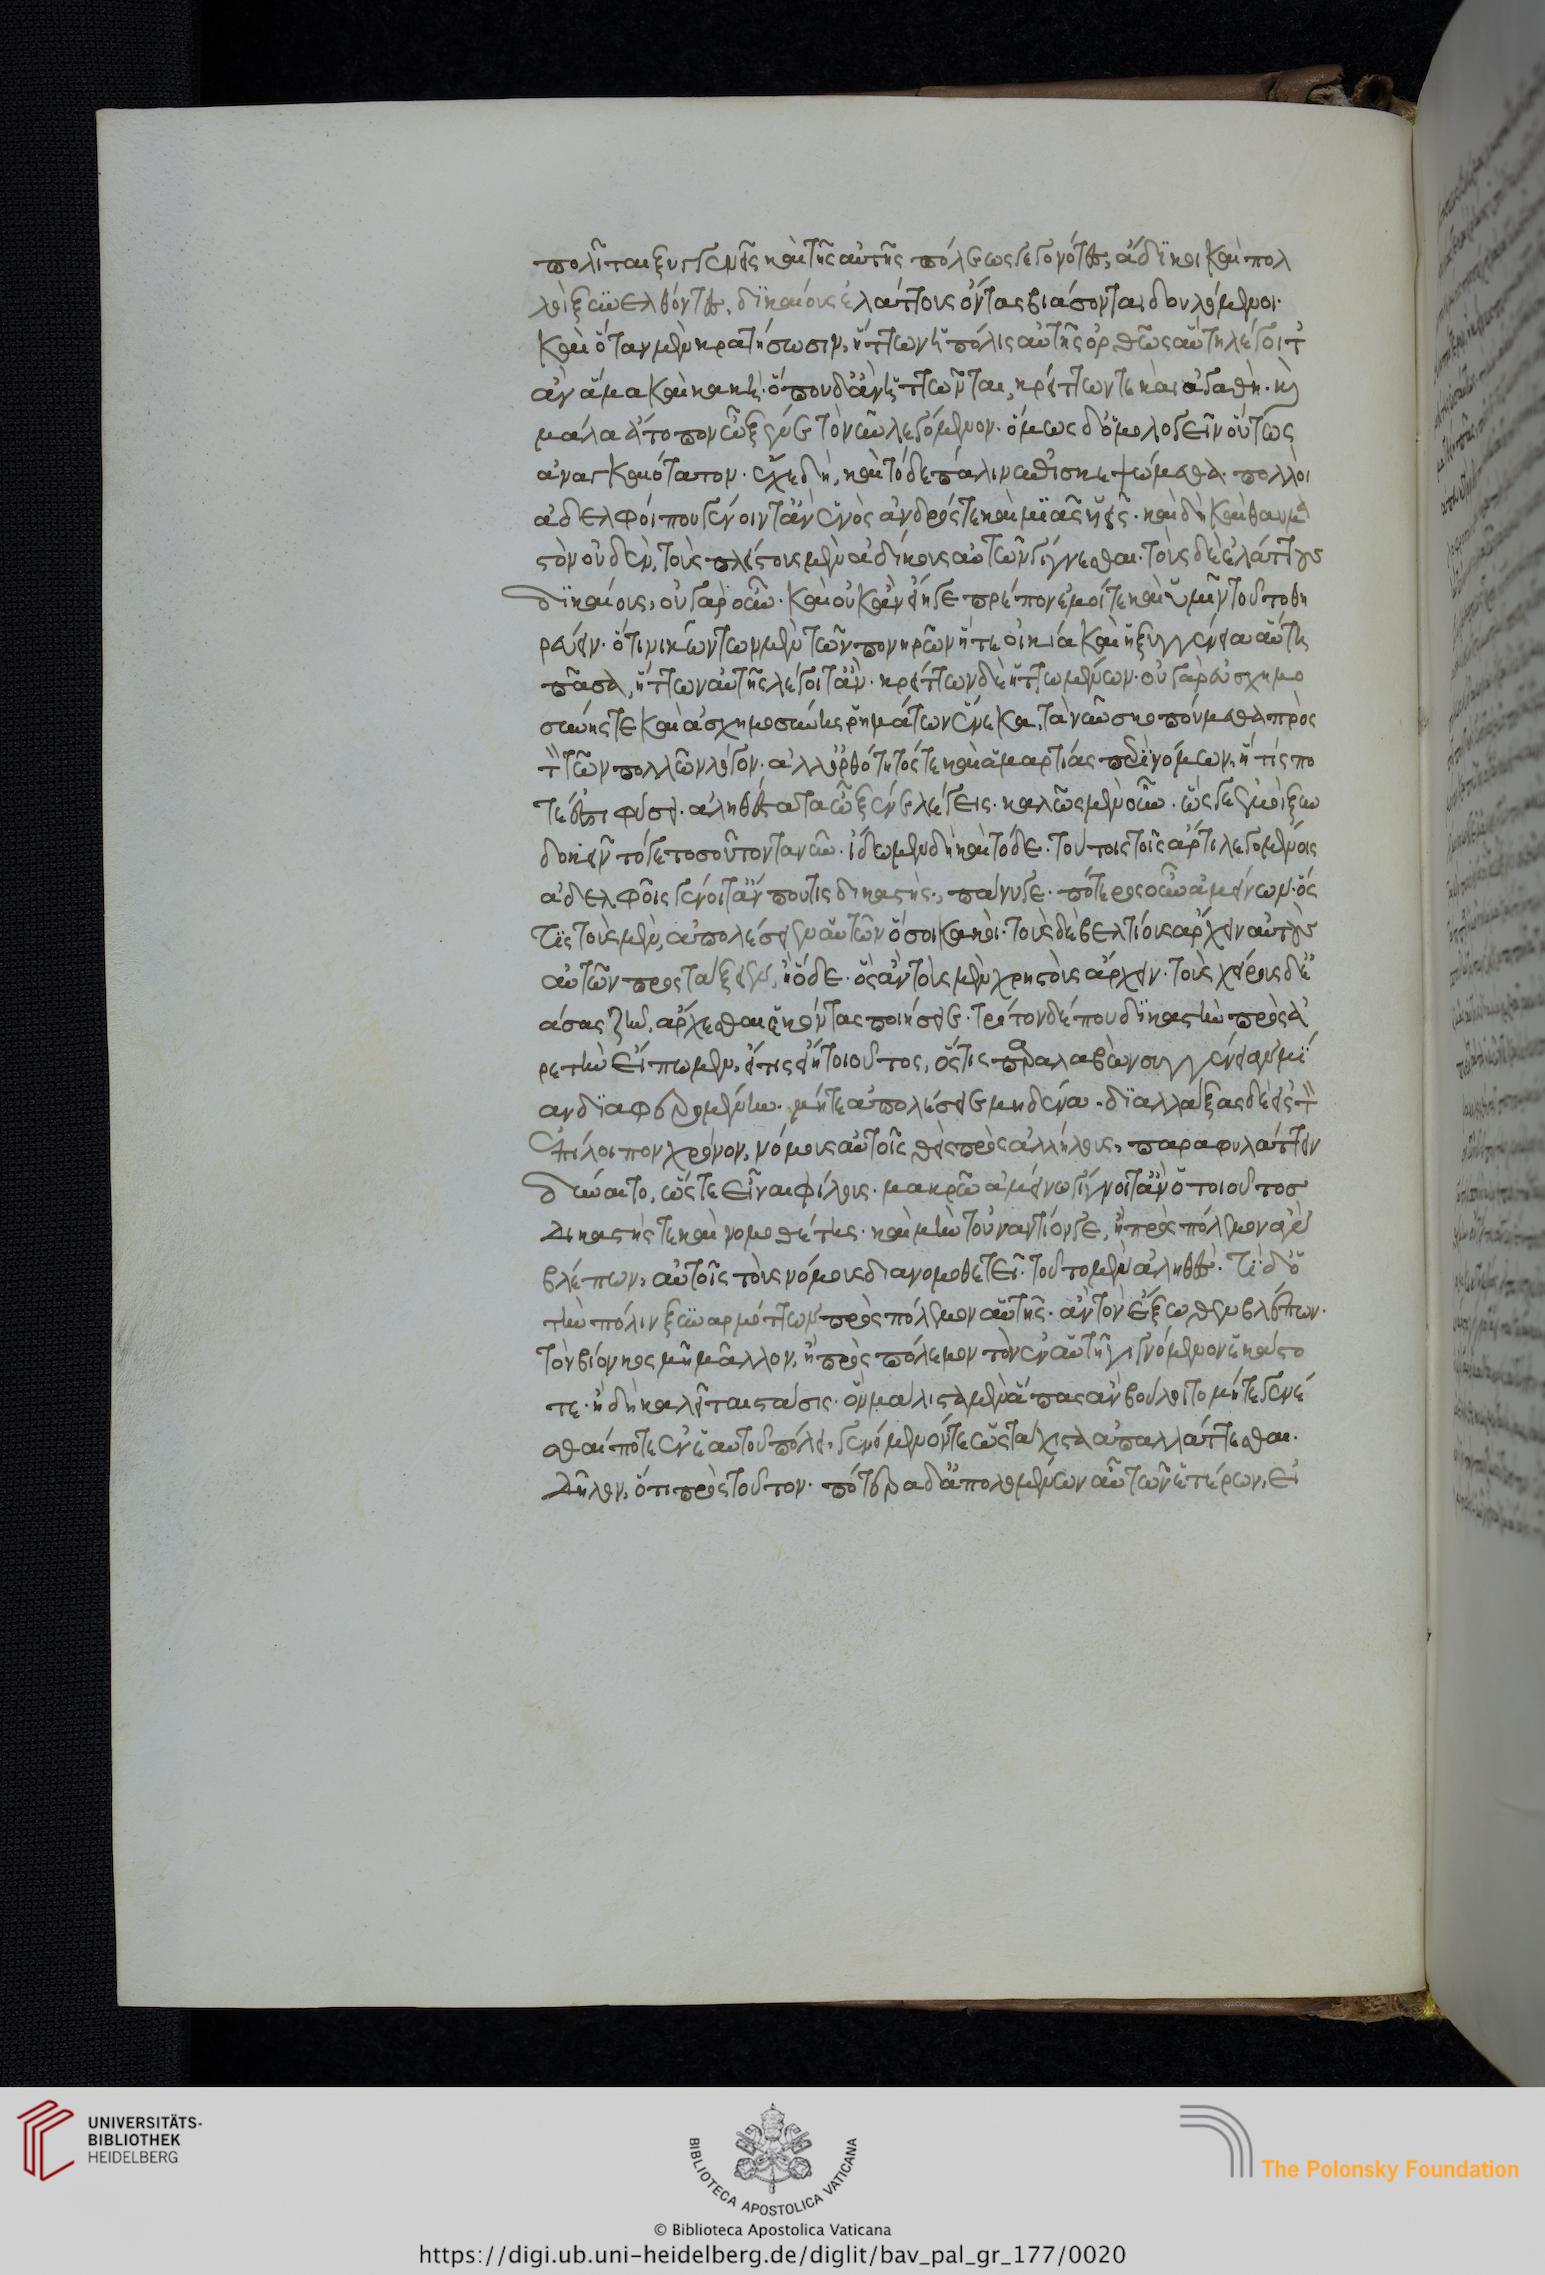 πολῖται ξυγγενεῖς καὶ τῆς αὐτῆς πόλεως γεγονότες, ἄδικοι καὶ πολ
λοὶ ξυνελθόντες, δικαίους ἐλάττους ὄντας βιάσονται δουλούμενοι·
καὶ ὅταν μὲν κρατήσωσιν, ἥττων ἡ πόλις αὐτῆς ὀρθῶς αὕτη λέγοιτ
ἂν ἅμα καὶ κακή· ὅπου δ' ἂν ἡττῶνται, κρείττων τε καὶ ἀγαθή. καὶ
μάλα ἄτοπον ὦ ξένε τὸ νῦν λεγόμενον· ὅμως δ' ὁμολογεῖν οὕτως
ἀναγκαιότατον. ἔχε δή, καὶ τόδε πάλιν ἐπισκεψώμεθα. πολλοὶ
ἀδελφοί που γένοιντ' ἂν ἑνὸς ἀνδρός τε καὶ μιᾶς υἱεῖς. καὶ δὴ καὶ θαυμα
στὸν οὐδέν, τοὺς πλείους μὲν ἀδίκους αὐτῶν γίγνεσθαι. τοὺς δὲ ἐλάττους
δικαίους, οὐ γὰρ οὖν. καὶ οὐκ ἂν εἴη γε πρέπον ἐμοί τε καὶ ὑμῖν τοῦτο θη
ρεύειν. ὅτι νικώντων μὲν τῶν πονηρῶν ἥ τε οἰκία καὶ ἡ ξυγγένεια αὕτη
πᾶσα, ἥττων αὑτῆς λέγοιτ' ἄν. κρείττων δὲ ἡττωμένων. οὐ γὰρ εὐσχημο
σύνης τε καὶ ἀσχημοσύνης ῥημάτων ἕνεκα, τὰ νῦν σκοπούμεθα πρὸς
τὸν τῶν πολλῶν λόγον. ἀλλ' ὀρθότητός τε καὶ ἁμαρτίας περὶ νόμων, ἥτις πο
τέ ἐστι φύσει. ἀληθέστατα ὦ ξένε λέγεις. καλῶς μὲν οὖν. ὥς γε ἐμοὶ ξυν
δοκεῖν τό γε τοσοῦτον τανῦν. ἴδωμεν δὴ καὶ τόδε. τούτοις τοῖς ἄρτι λεγομένοις
ἀδελφοῖς γένοιτ' ἄν που τις δικαστής., πάνυ γε. πότερος οὖν ἀμείνων. ὅς
τις τοὺς μὲν, ἀπολέσειεν αὐτῶν ὅσοι κακοί. τοὺς δὲ βελτίους ἄρχειν αὐτοὺς
αὑτῶν προστάξειεν, ἢ ὅδε. ὃς ἂν τοὺς μὲν χρηστοὺς ἄρχειν. τοὺς χείρους δ' ἐ
άσας ζῆν, ἄρχεσθαι ἑκόντας ποιήσειε. τρίτον δέ που δικαστὴν πρὸς ἀ
ρετὴν εἴπωμεν, εἴ τις εἴη τοιοῦτος, ὅστις παραλαβὼν συγγένειαν μί
αν διαφερομένην. μήτε ἀπολέσειε μηδένα. διαλλάξας δὲ εἰς τὸν
ἐπίλοιπον χρόνον, νόμους αὐτοῖς θεὶς πρὸς ἀλλήλους, παραφυλάττειν
δύναιτο, ὥστε εἶναι φίλους. μακρῷ ἀμείνων γίγνοιτ' ἂν ὁ τοιοῦτος
δικαστής τε καὶ νομοθέτης. καὶ μὴν τοὐναντίον γε, ἢ πρὸς πόλεμον ἂν
βλέπων, αὐτοῖς τοὺς νόμους διανομοθετεῖ. τοῦτο μὲν ἀληθές. τί δ' ὁ
τὴν πόλιν ξυναρμόττων πρὸς πόλεμον αὐτῆς. ἂν τὸν ἔξωθεν βλέπων.
τὸν βίον κοσμῆ μᾶλλον, ἢ πρὸς πόλεμον τὸν ἐν αὐτῇ γιγνόμενον ἑκάστο
τε. ἣ δὴ καλεῖται στάσις. ὃν μάλιστα μὲν ἅπας ἂν βούλοιτο μήτε γενέ
σθαι ποτὲ ἐν ἑαυτοῦ πόλει, γενόμενόν τε ὡς τάχιστα ἀπαλλάττεσθαι.
δῆλον, ὅτι πρὸς τοῦτον. πότερα δ' ἀπολομένων αὖ τῶν ἑτέρων, εἰ
UNIVERSITÄTS-
BIBLIOTHEK
HEIDELBERG
BIBLIOTECA APOSTOLICA VATICANA
The Polonsky Foundation
© Biblioteca Apostolica Vaticana
https://digi.ub.uni-heidelberg.de/diglit/bav_pal_gr_177/0020